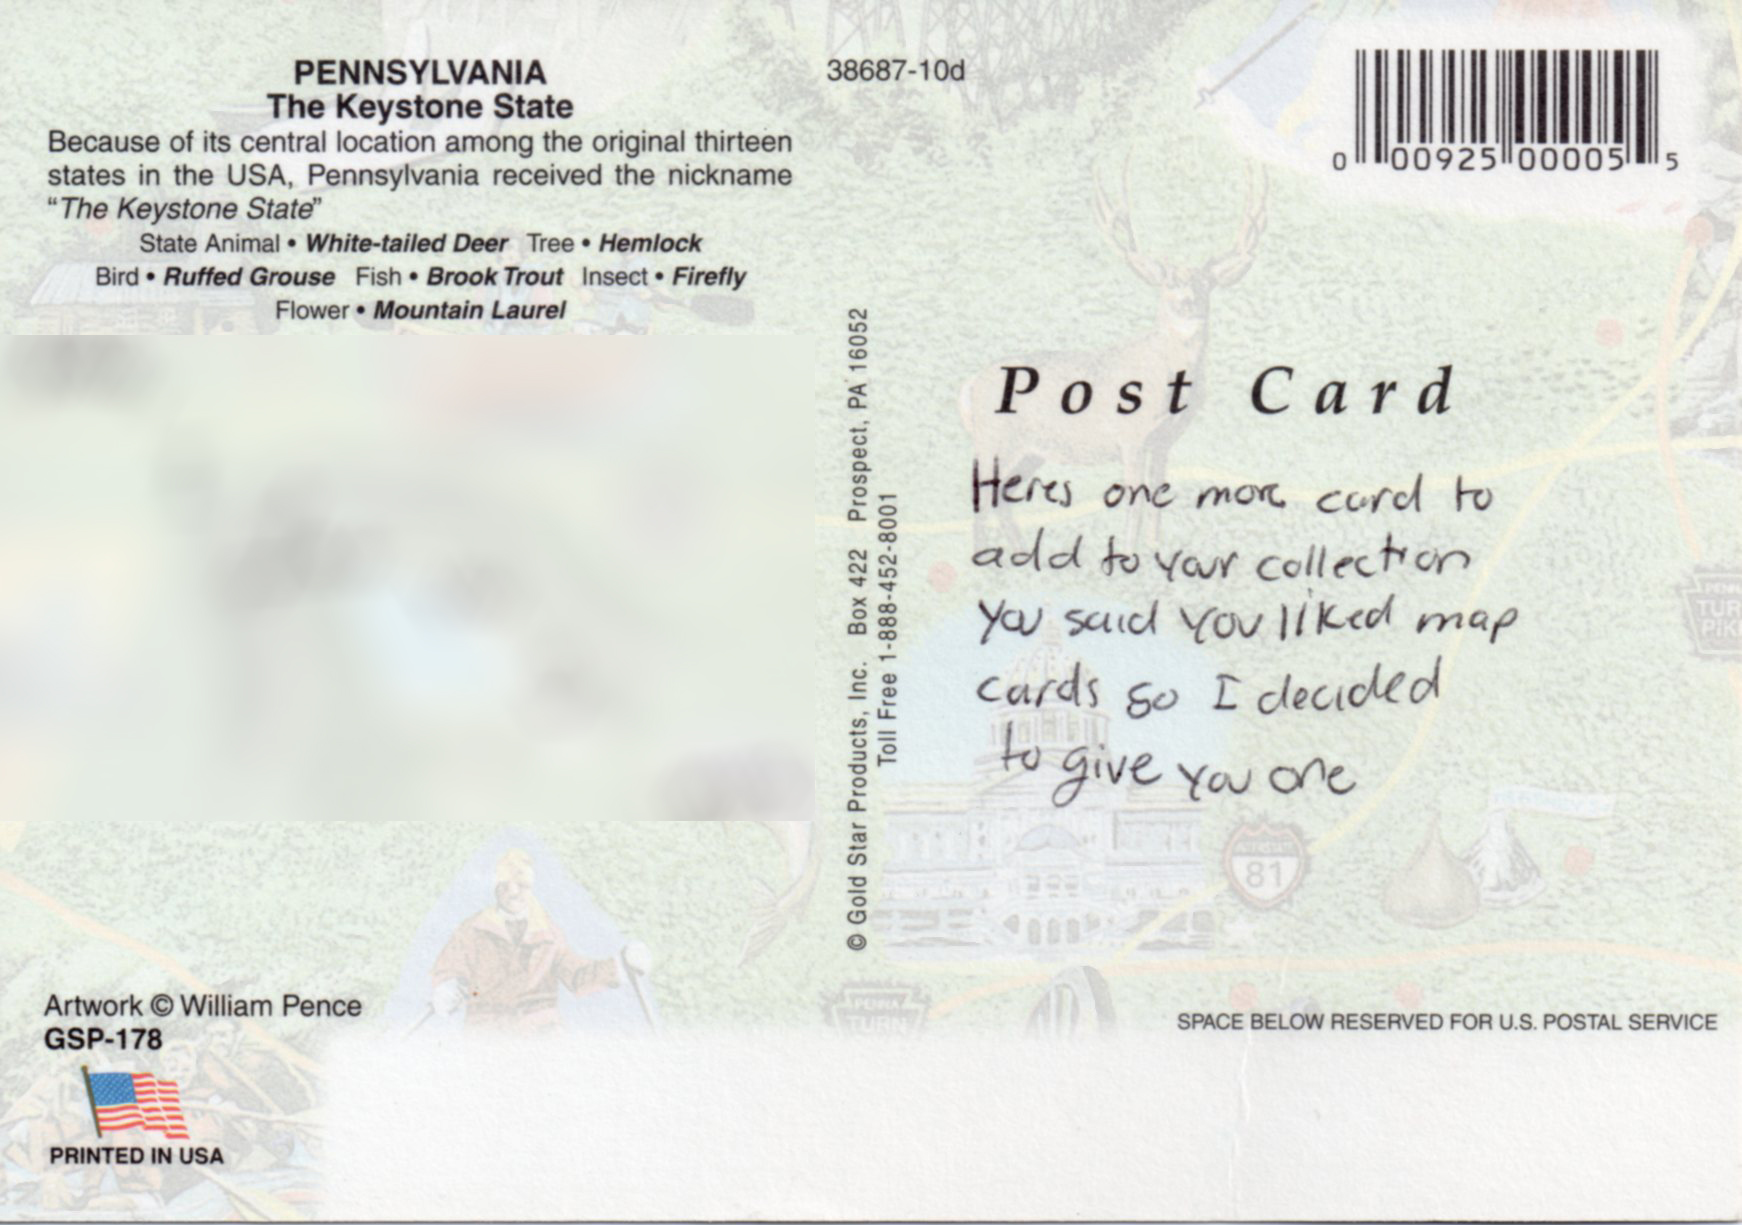 PENNSYLVANIA
The Keystone State
Because of its central location among the original thirteen
states in the USA, Pennsylvania received the nickname
“The Keystone State”
State Animal • White-tailed Deer Tree • Hemlock
Bird • Ruffed Grouse Fish • Brook Trout Insect • Firefly
Flower • Mountain Laurel
Artwork © William Pence
GSP-178
PRINTED IN USA
38687-10d
© Gold Star Products, Inc. Box 422 Prospect, PA 16052
Toll Free 1-888-452-8001
0 00925 00005 5
Post Card
Heres one more card to
add to your collection
you said you liked map
cards so I decided
to give you one
PENNA
TUR
PIK
81
PENNA
SPACE BELOW RESERVED FOR U.S. POSTAL SERVICE